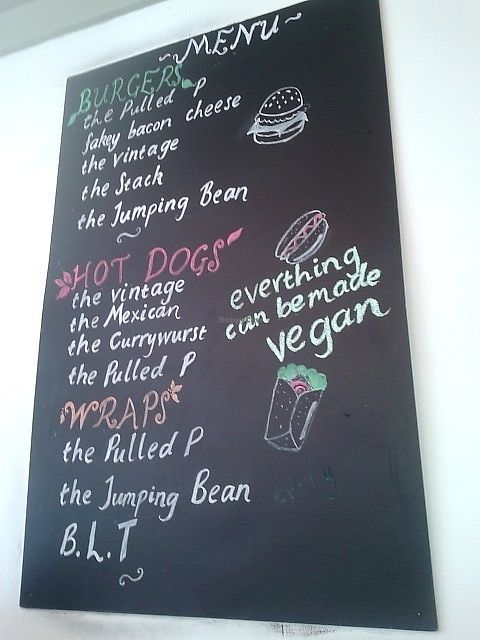 ~MENU~
BURGERS
the Pulled P
fakey bacon cheese
the vintage
the Stack
the Jumping Bean
~
HOT DOGS
the vintage
the Mexican
the Currywurst
the Pulled P
everthing
can be made
vegan
WRAPS
the Pulled P
the Jumping Bean
every
B.L.T
~